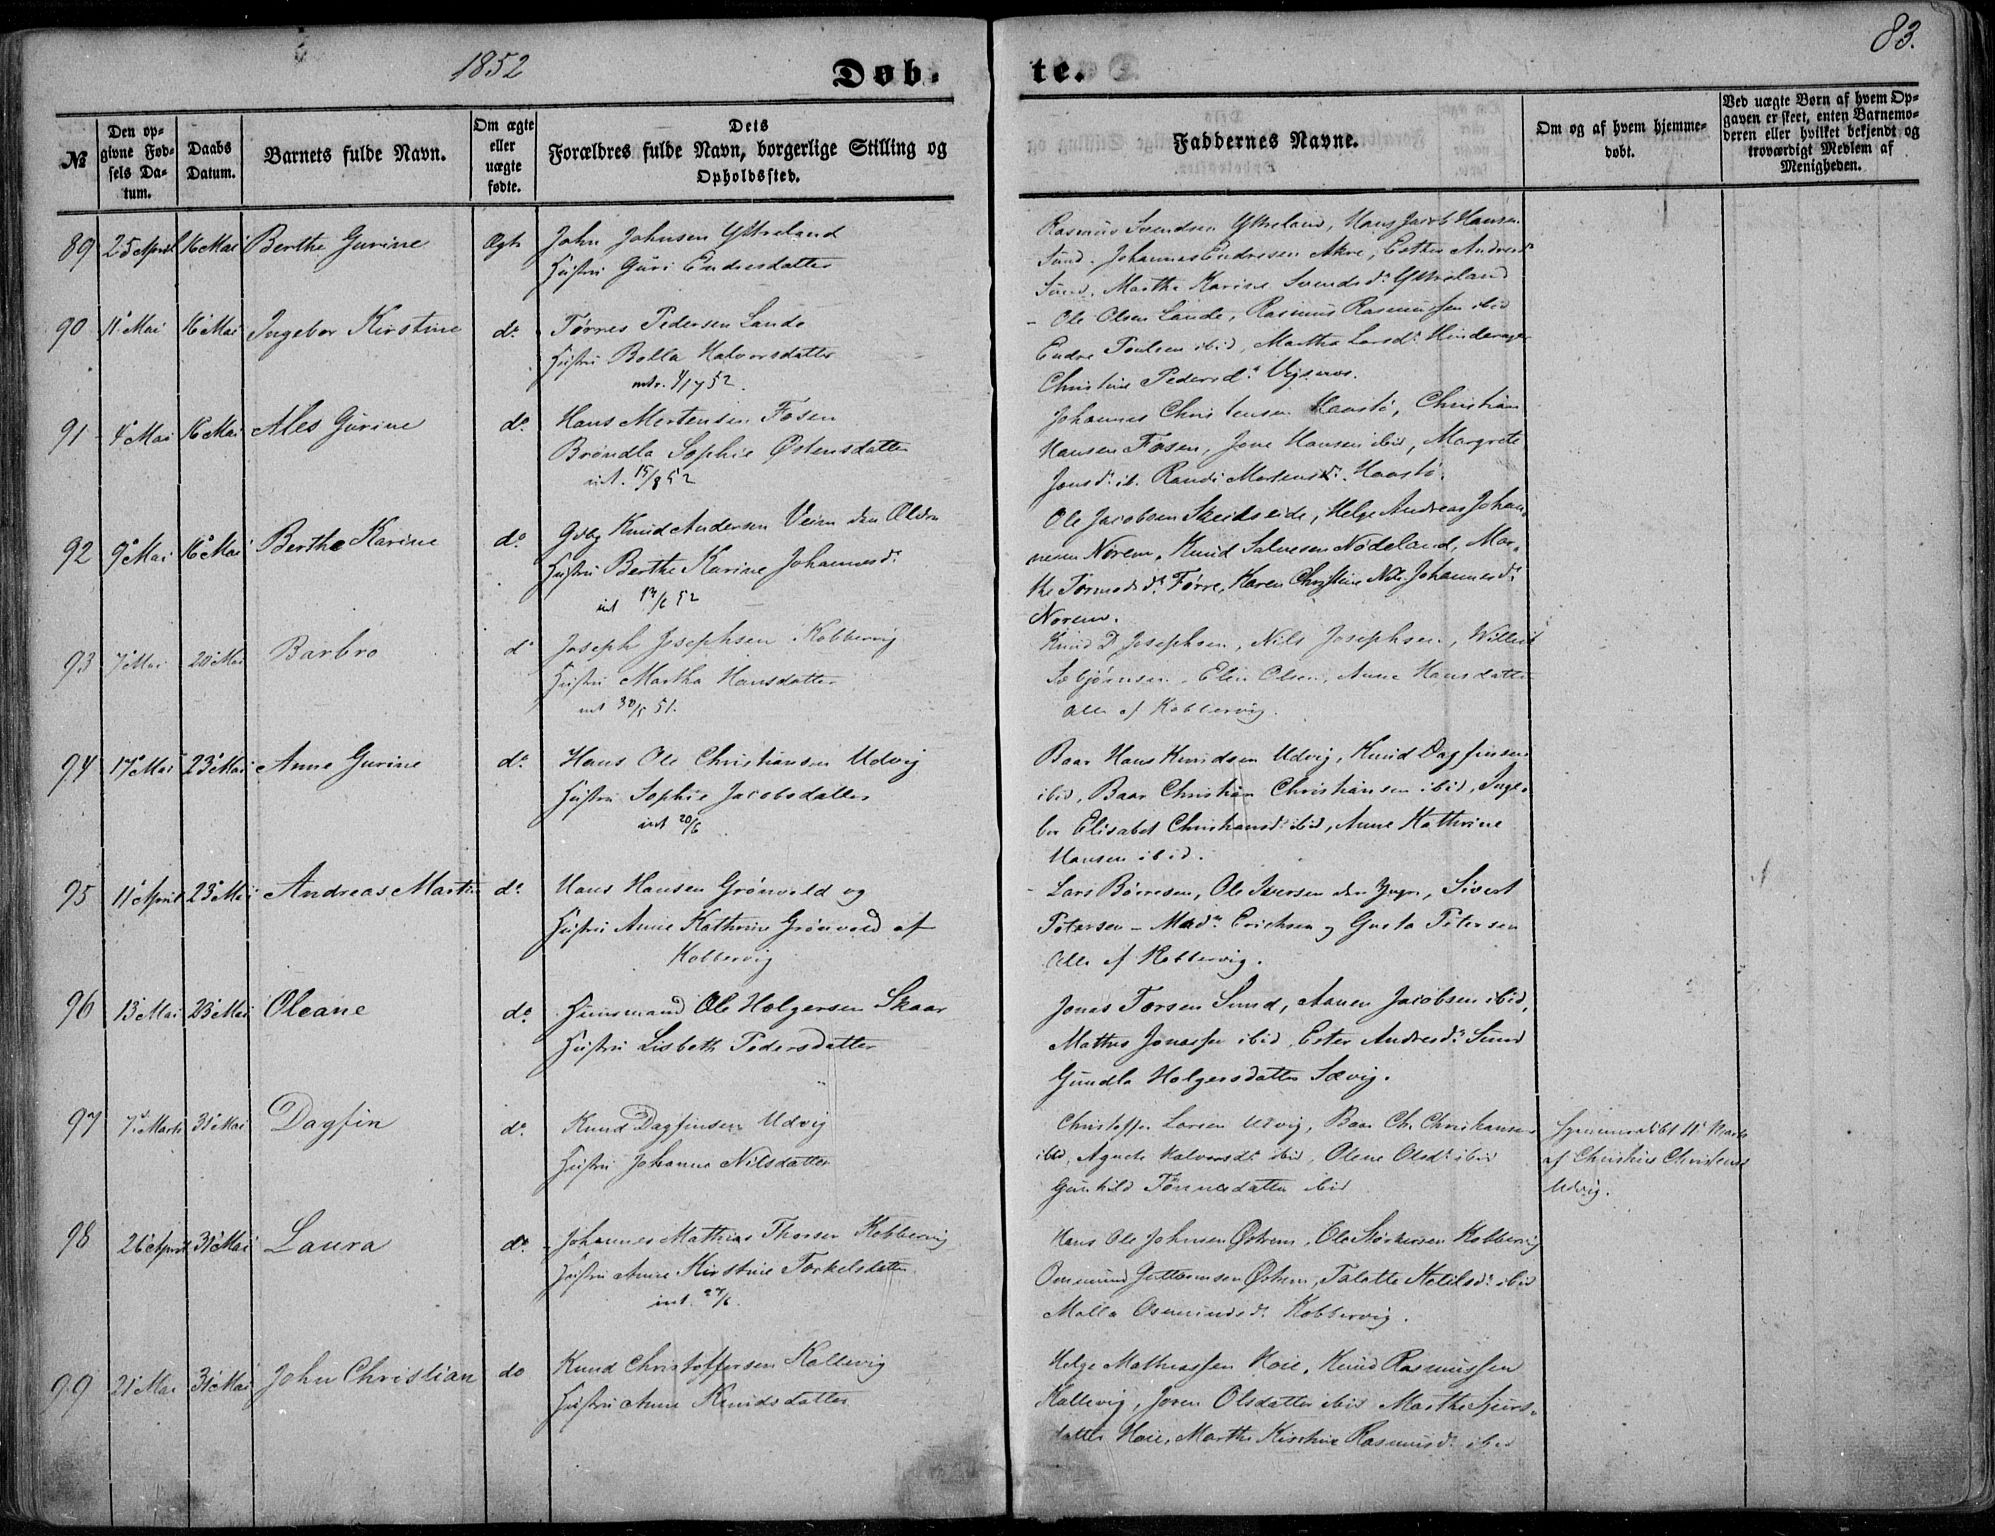 1852
Døb-
te.
83.
№
Den op-
givne Fød-
sels Da-
tum.
Daabs
Datum.
Barnets fulde Navn.
Om ægte
eller
uægte
fødte.
Dets
Forældres fulde Navn, borgerlige Stilling og
Opholdssted.
Faddernes Navne.
Om og af hvem hjemme-
døbt.
Ved uægte Børn af hvem Op-
gaven er skeet, enten Barnemo-
deren eller hvilket bekjendt og
troværdigt Medlem af
Menigheden.
89 25 April 16 Mai Berthe Gurine Ægte John Johnsen Ystreland
Hustru Guri Endresdatter
Rasmus Svendsen Ystreland, Hans Jacob Hansen
Sund. Johannes Endresen Akre, Esther Andresd.
Sund, Martha Karine Svendsd. Ystreland
90 11 Mai 16 Mai Ingebor Kirstine do. Tørres Pedersen Lande
Hustru Bolla Halvorsdatter
52.
Ole Olsen Lande, Rasmus Rasmussen ibid
Endre Poulsen ibid, Martha Larsd. Hinderager
Christine Pedersd.
91 4 Mai 16 Mai Ales Gurine do. Hans Mortensen Fosen
Brøndla Sophie Østensdatter
int. 15/8 52
Johannes Christensen Haastø, Christian
Hansen Fosen, Jone Hansen ibid, Margrete
Jonsd. ib. Randi Mortensd. Haastø.
92 9 Mai 16 Mai Berthe Karine do. Gdbg Knud Andersen Veim den Ældre
Hustru Berthe Karine Johannesd.
int 52
Ole Jacobsen Skeidseide, Helge Andreas Johan-
nesen Norem, Knud Salvesen Nodeland, Mar-
the Tormodsd. Førre, Karen Christine Johannesd.
Norem.
93 7 Mai 20 Mai Barbro do Joseph Josephsen Kobbervig
Hustru Martha Hansdatter
int 30/5 51.
Knud D Josephsen, Nils Josephsen, Willert
Sebjørnsen, Elen Olsen, Anne Hansdatter
alle af Kobbervig.
94 17 Mai 23 Mai Anne Gurine do. Hans Ole Christiansen Udvig
Hustru Sophie Jacobsdatter
int 20/6
Baar Hans Knudsen Udvig, Knud Dagfinsen
ibid, Baar Christian Christiansen ibid, Inge-
bor Elisabet Christiansd. ibid, Anne Kathrine
Hansen ibid.
95 11 April 23 Mai Andreas Martin do. Hans Hansen Grønvold og
Hustru Anne Kathrine Grønvold af
Kobbervig
Lars Børresen, Ole Iversen den Yngre, Sivert
Petersen - Mad. Erichsen og Gusta Petersen
alle af Kobbervig.
96 13 Mai 23 Mai Oleane do. Huusmand Ole Holgersen Skaar
Hustru Lisbeth Pedersdatter
Jonas Torsen Sund, Aanen Jacobsen ibid,
Mathes Jonassen ibid, Ester Andresd. Sund
Gundla Holgersdatter Sævig.
97 7 Marts 31 Mai Dagfin do. Knud Dagfinsen Udvig
Hustru Johanna Nilsdatter
Christoffer Larsen Udvig, Baar Ch. Christiansen
ibid, Agnete Halvorsd. ibid, Olene Olsd. ibid
Gunhild Tønnesdatter ibid
hjemmedøbt 11 Marts
af Christine Christensd
Udvig.
98 26 April 31 Mai Laura do. Johannes Mathias Thorsen Kobbervig
Hustru Anne Kirstine Torkelsdatter
int. 27/6.
Hans Ole Johnsen Østrem, Ole Størkersen Kobbervig
Osmund Guttormsen Østrem, Talette Ketilsd. ibid
Malla Osmundsd. Kobbervig.
99 21 Mai 31 Mai John Christian do Knud Christoffersen Kallevig
Hustru Anne Knudsdatter
Helge Mathiassen Hoie, Knud Rasmussen
Kallevig, Joren Olsdatter ibid Marthe Sjurs-
datter Hoie, Marthe Kirstine Rasmusd. ibid